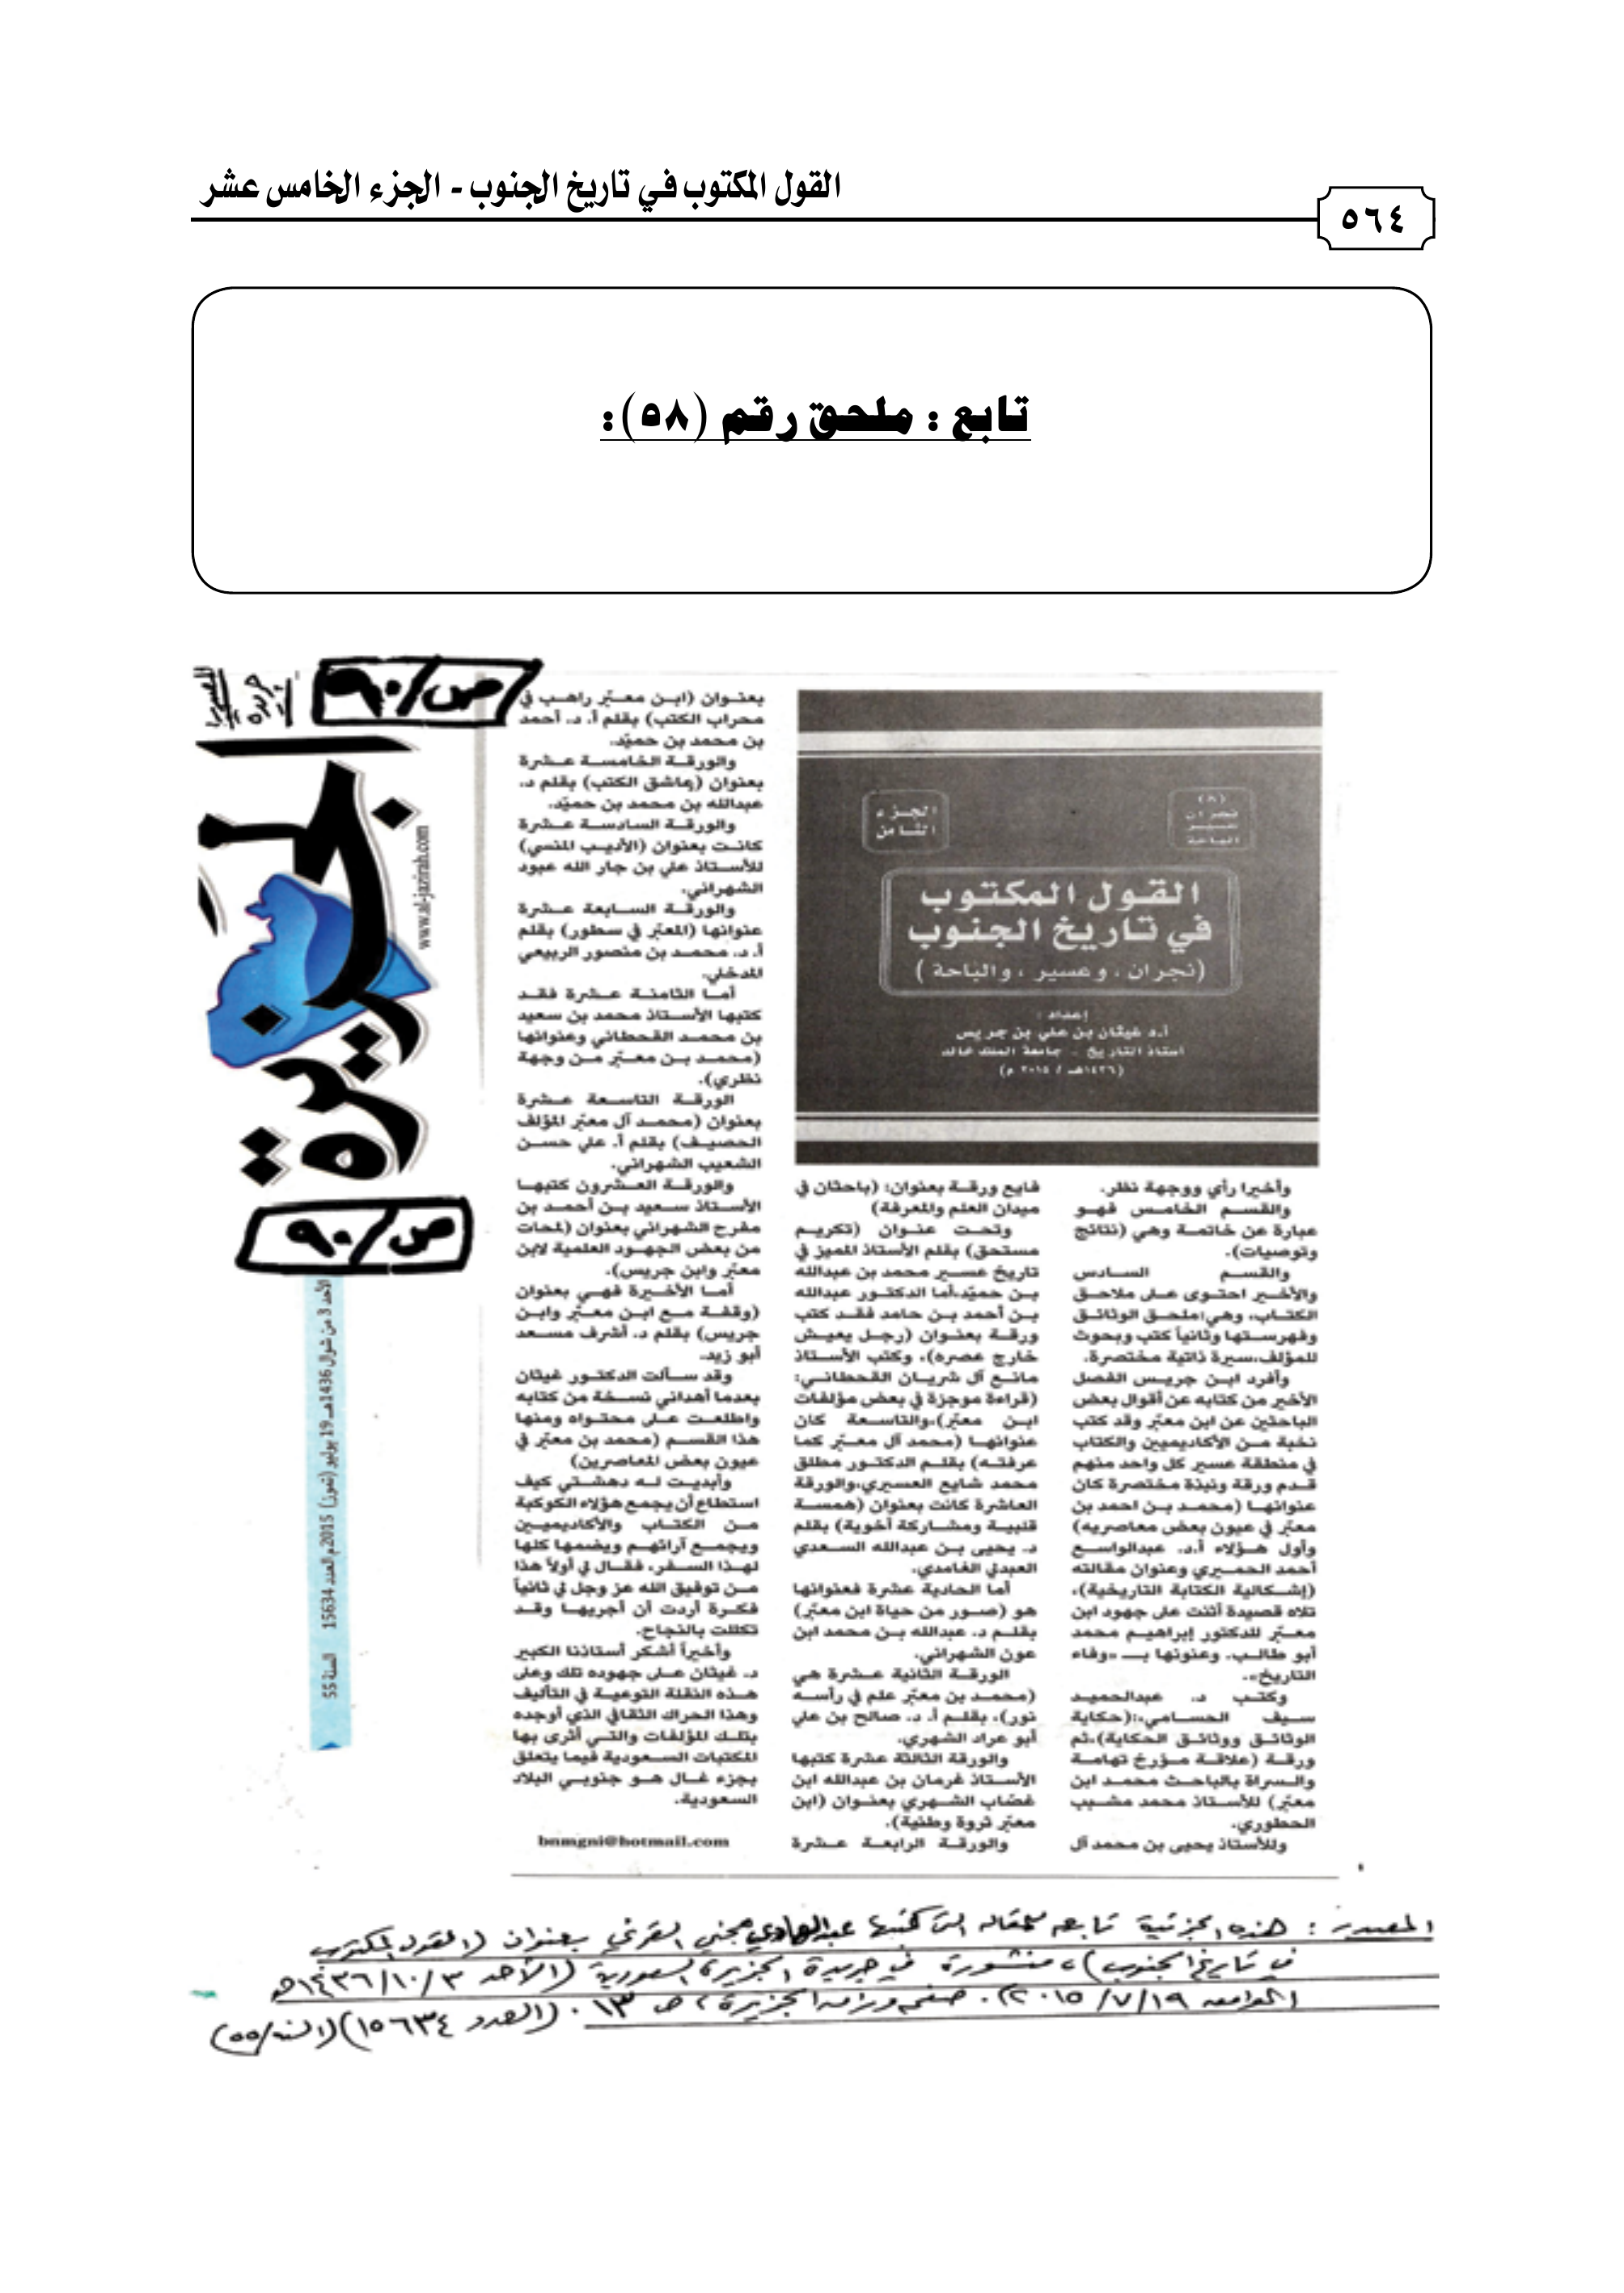 القول المكتوب في تاريخ الجنوب - الجزء الخامس عشر
٥٦٤
تابع : ملحق رقم (٥٨):
ص/٩٠
الجزيرة
www.al-jazirah.com
ص/٩٠
الأحد 3 من شوال 1436هـ 19 يوليو (تموز) 2015م العدد 15634 السنة 55
(٨)
نجران
عسير
الباحة
الجزء
الثامن
القول المكتوب
في تاريخ الجنوب
(نجران ، وعسير ، والباحة )
إعداد :
أ.د غيثان بن علي بن جريس
أستاذ التاريخ - جامعة الملك خالد
(١٤٣٦هـ / ٢٠١٥ م)
وأخيرا رأي ووجهة نظر.
والقسم الخامس فهو
عبارة عن خاتمة وهي (نتائج
وتوصيات).
والقسم السادس
والأخير احتوى على ملاحق
الكتاب، وهي:ملحق الوثائق
وفهرستها وثانياً كتب وبحوث
للمؤلف،سيرة ذاتية مختصرة.
وأفرد ابن جريس الفصل
الأخير من كتابه عن أقوال بعض
الباحثين عن ابن معبّر وقد كتب
نخبة من الأكاديميين والكتاب
في منطقة عسير كل واحد منهم
قدم ورقة ونبذة مختصرة كان
عنوانها (محمد بن احمد بن
معبّر في عيون بعض معاصريه)
وأول هؤلاء أ.د. عبدالواسع
أحمد الحميري وعنوان مقالته
(إشكالية الكتابة التاريخية)،
تلاه قصيدة أثنت على جهود ابن
معبّر للدكتور إبراهيم محمد
أبو طالب. وعنونها بـ «وفاء
التاريخ».
وكتب د. عبدالحميد
سيف الحسامي،:(حكاية
الوثائق ووثائق الحكاية)،ثم
ورقة (علاقة مؤرخ تهامة
والسراة بالباحث محمد ابن
معبّر) للأستاذ محمد مشبب
الحطوري.
وللأستاذ يحيى بن محمد آل
فايع ورقة بعنوان: (باحثان في
ميدان العلم والمعرفة)
وتحت عنوان (تكريم
مستحق) بقلم الأستاذ المميز في
تاريخ عسير محمد بن عبدالله
بن حميّد،أما الدكتور عبدالله
بن أحمد بن حامد فقد كتب
ورقة بعنوان (رجل يعيش
خارج عصره)، وكتب الأستاذ
مانع آل شريان القحطاني:
(قراءة موجزة في بعض مؤلفات
ابن معبّر)،والتاسعة كان
عنوانها (محمد آل معبّر كما
عرفته) بقلم الدكتور مطلق
محمد شايع العسيري،والورقة
العاشرة كانت بعنوان (همسة
قلبية ومشاركة أخوية) بقلم
د. يحيى بن عبدالله السعدي
العبدلي الغامدي.
أما الحادية عشرة فعنوانها
هو (صور من حياة ابن معبّر)
بقلم د. عبدالله بن محمد ابن
عون الشهراني.
الورقة الثانية عشرة هي
(محمد بن معبّر علم في رأسه
نور)، بقلم أ. د. صالح بن علي
أبو عراد الشهري.
والورقة الثالثة عشرة كتبها
الأستاذ غرمان بن عبدالله ابن
غصّاب الشهري بعنوان (ابن
معبّر ثروة وطنية).
والورقة الرابعة عشرة
بعنوان (ابن معبّر راهب في
محراب الكتب) بقلم أ. د. أحمد
بن محمد بن حميّد.
والورقة الخامسة عشرة
بعنوان (عاشق الكتب) بقلم د.
عبدالله بن محمد بن حميّد.
والورقة السادسة عشرة
كانت بعنوان (الأديب المنسي)
للأستاذ علي بن جار الله عبود
الشهراني.
والورقة السابعة عشرة
عنوانها (المعبّر في سطور) بقلم
أ. د. محمد بن منصور الربيعي
المدخلي.
أما الثامنة عشرة فقد
كتبها الأستاذ محمد بن سعيد
بن محمد القحطاني وعنوانها
(محمد بن معبّر من وجهة
نظري).
الورقة التاسعة عشرة
بعنوان (محمد آل معبّر المؤلف
الحصيف) بقلم أ. علي حسن
الشعيب الشهراني.
والورقة العشرون كتبها
الأستاذ سعيد بن أحمد بن
مفرح الشهراني بعنوان (لمحات
من بعض الجهود العلمية لابن
معبّر وابن جريس).
أما الأخيرة فهي بعنوان
(وقفة مع ابن معبّر وابن
جريس) بقلم د. أشرف مسعد
أبو زيد.
وقد سألت الدكتور غيثان
بعدما أهداني نسخة من كتابه
واطلعت على محتواه ومنها
هذا القسم (محمد بن معبّر في
عيون بعض المعاصرين)
وأبديت له دهشتي كيف
استطاع أن يجمع هؤلاء الكوكبة
من الكتاب والأكاديميين
ويجمع آرائهم ويضمها كلها
لهذا السفر، فقال لي أولاً هذا
من توفيق الله عز وجل لي ثانياً
فكرة أردت أن أجريها وقد
تكللت بالنجاح.
وأخيراً أشكر أستاذنا الكبير
د. غيثان على جهوده تلك وعلى
هذه النقلة النوعية في التأليف
وهذا الحراك الثقافي الذي أوجده
بتلك المؤلفات والتي أثرى بها
المكتبات السعودية فيما يتعلق
بجزء غال هو جنوبي البلاد
السعودية.
bnmgni@hotmail.com
المصدر : هذه الجزئية تابعه للمقاله التي كتبها عبدالهادي مجني القرني بعنوان (القول المكتوب
في تاريخ الجنوب)، منشورة في جريدة الجزيرة السعودية (الأحد ٣/١٠/١٤٣٦هـ
الموافق ١٩/٧/٢٠١٥). صفحة وراق الجزيرة، ص ١٣. (العدد ١٥٦٣٤)(السنة/٥٥)